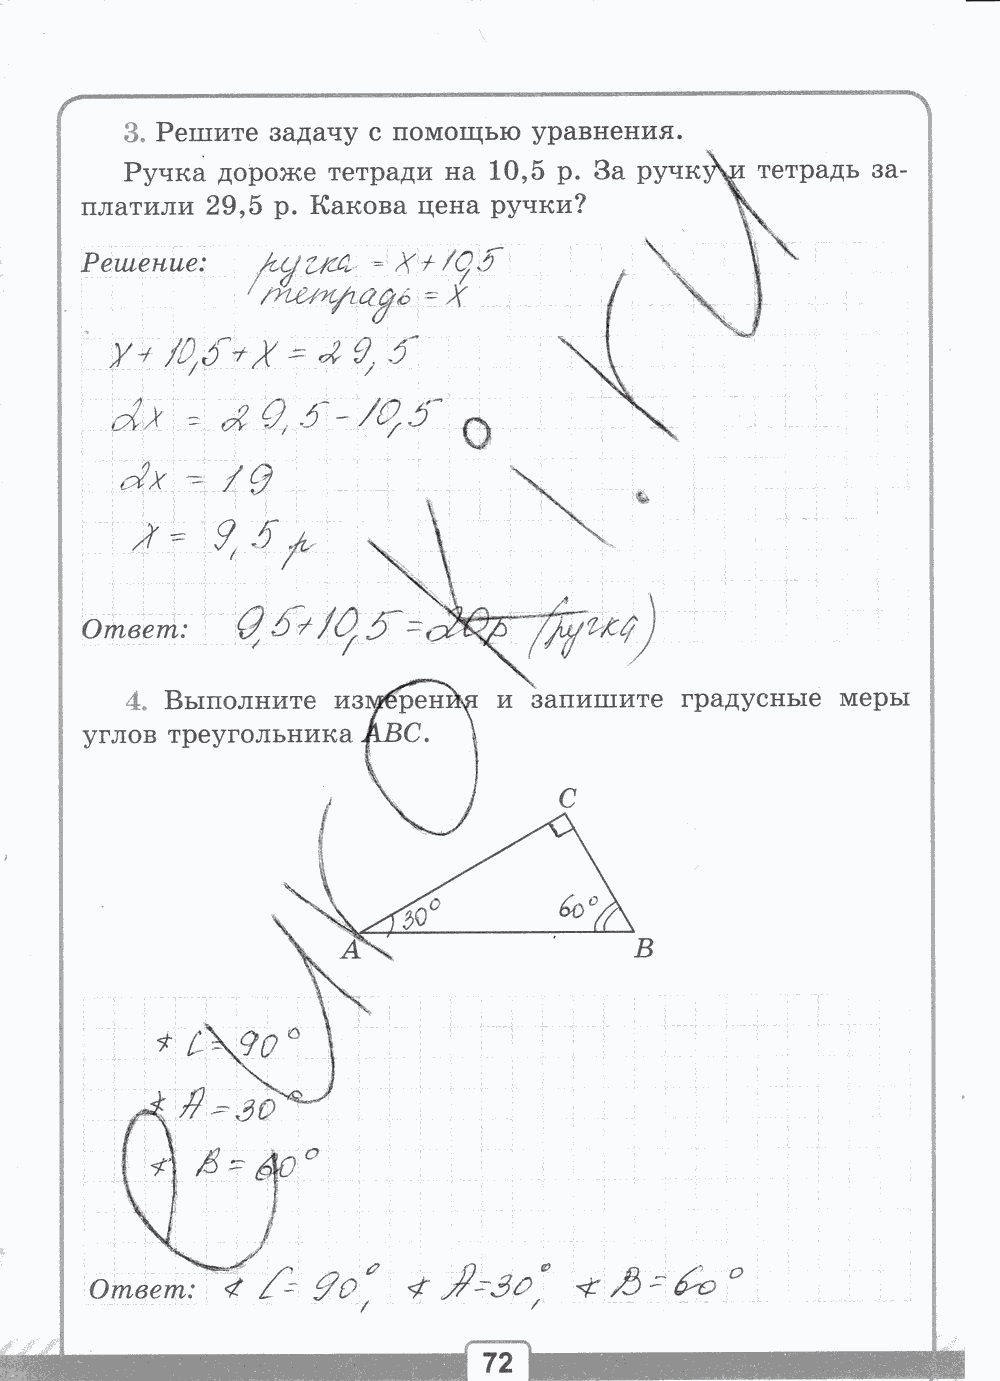 3. Решите задачу с помощью уравнения.
Ручка дороже тетради на 10,5 р. За ручку и тетрадь за-
платили 29,5 р. Какова цена ручки?
Решение: ручка = x + 10,5
тетрадь = x
x + 10,5 + x = 29,5
2x = 29,5 - 10,5
2x = 19
x = 9,5 р
Ответ: 9,5 + 10,5 = 20р (ручка)
4. Выполните измерения и запишите градусные меры
углов треугольника ABC.
C
30° 60°
A B
∢ C = 90°
∢ A = 30°
∢ B = 60°
Ответ: ∢ C = 90°, ∢ A = 30°, ∢ B = 60°
72